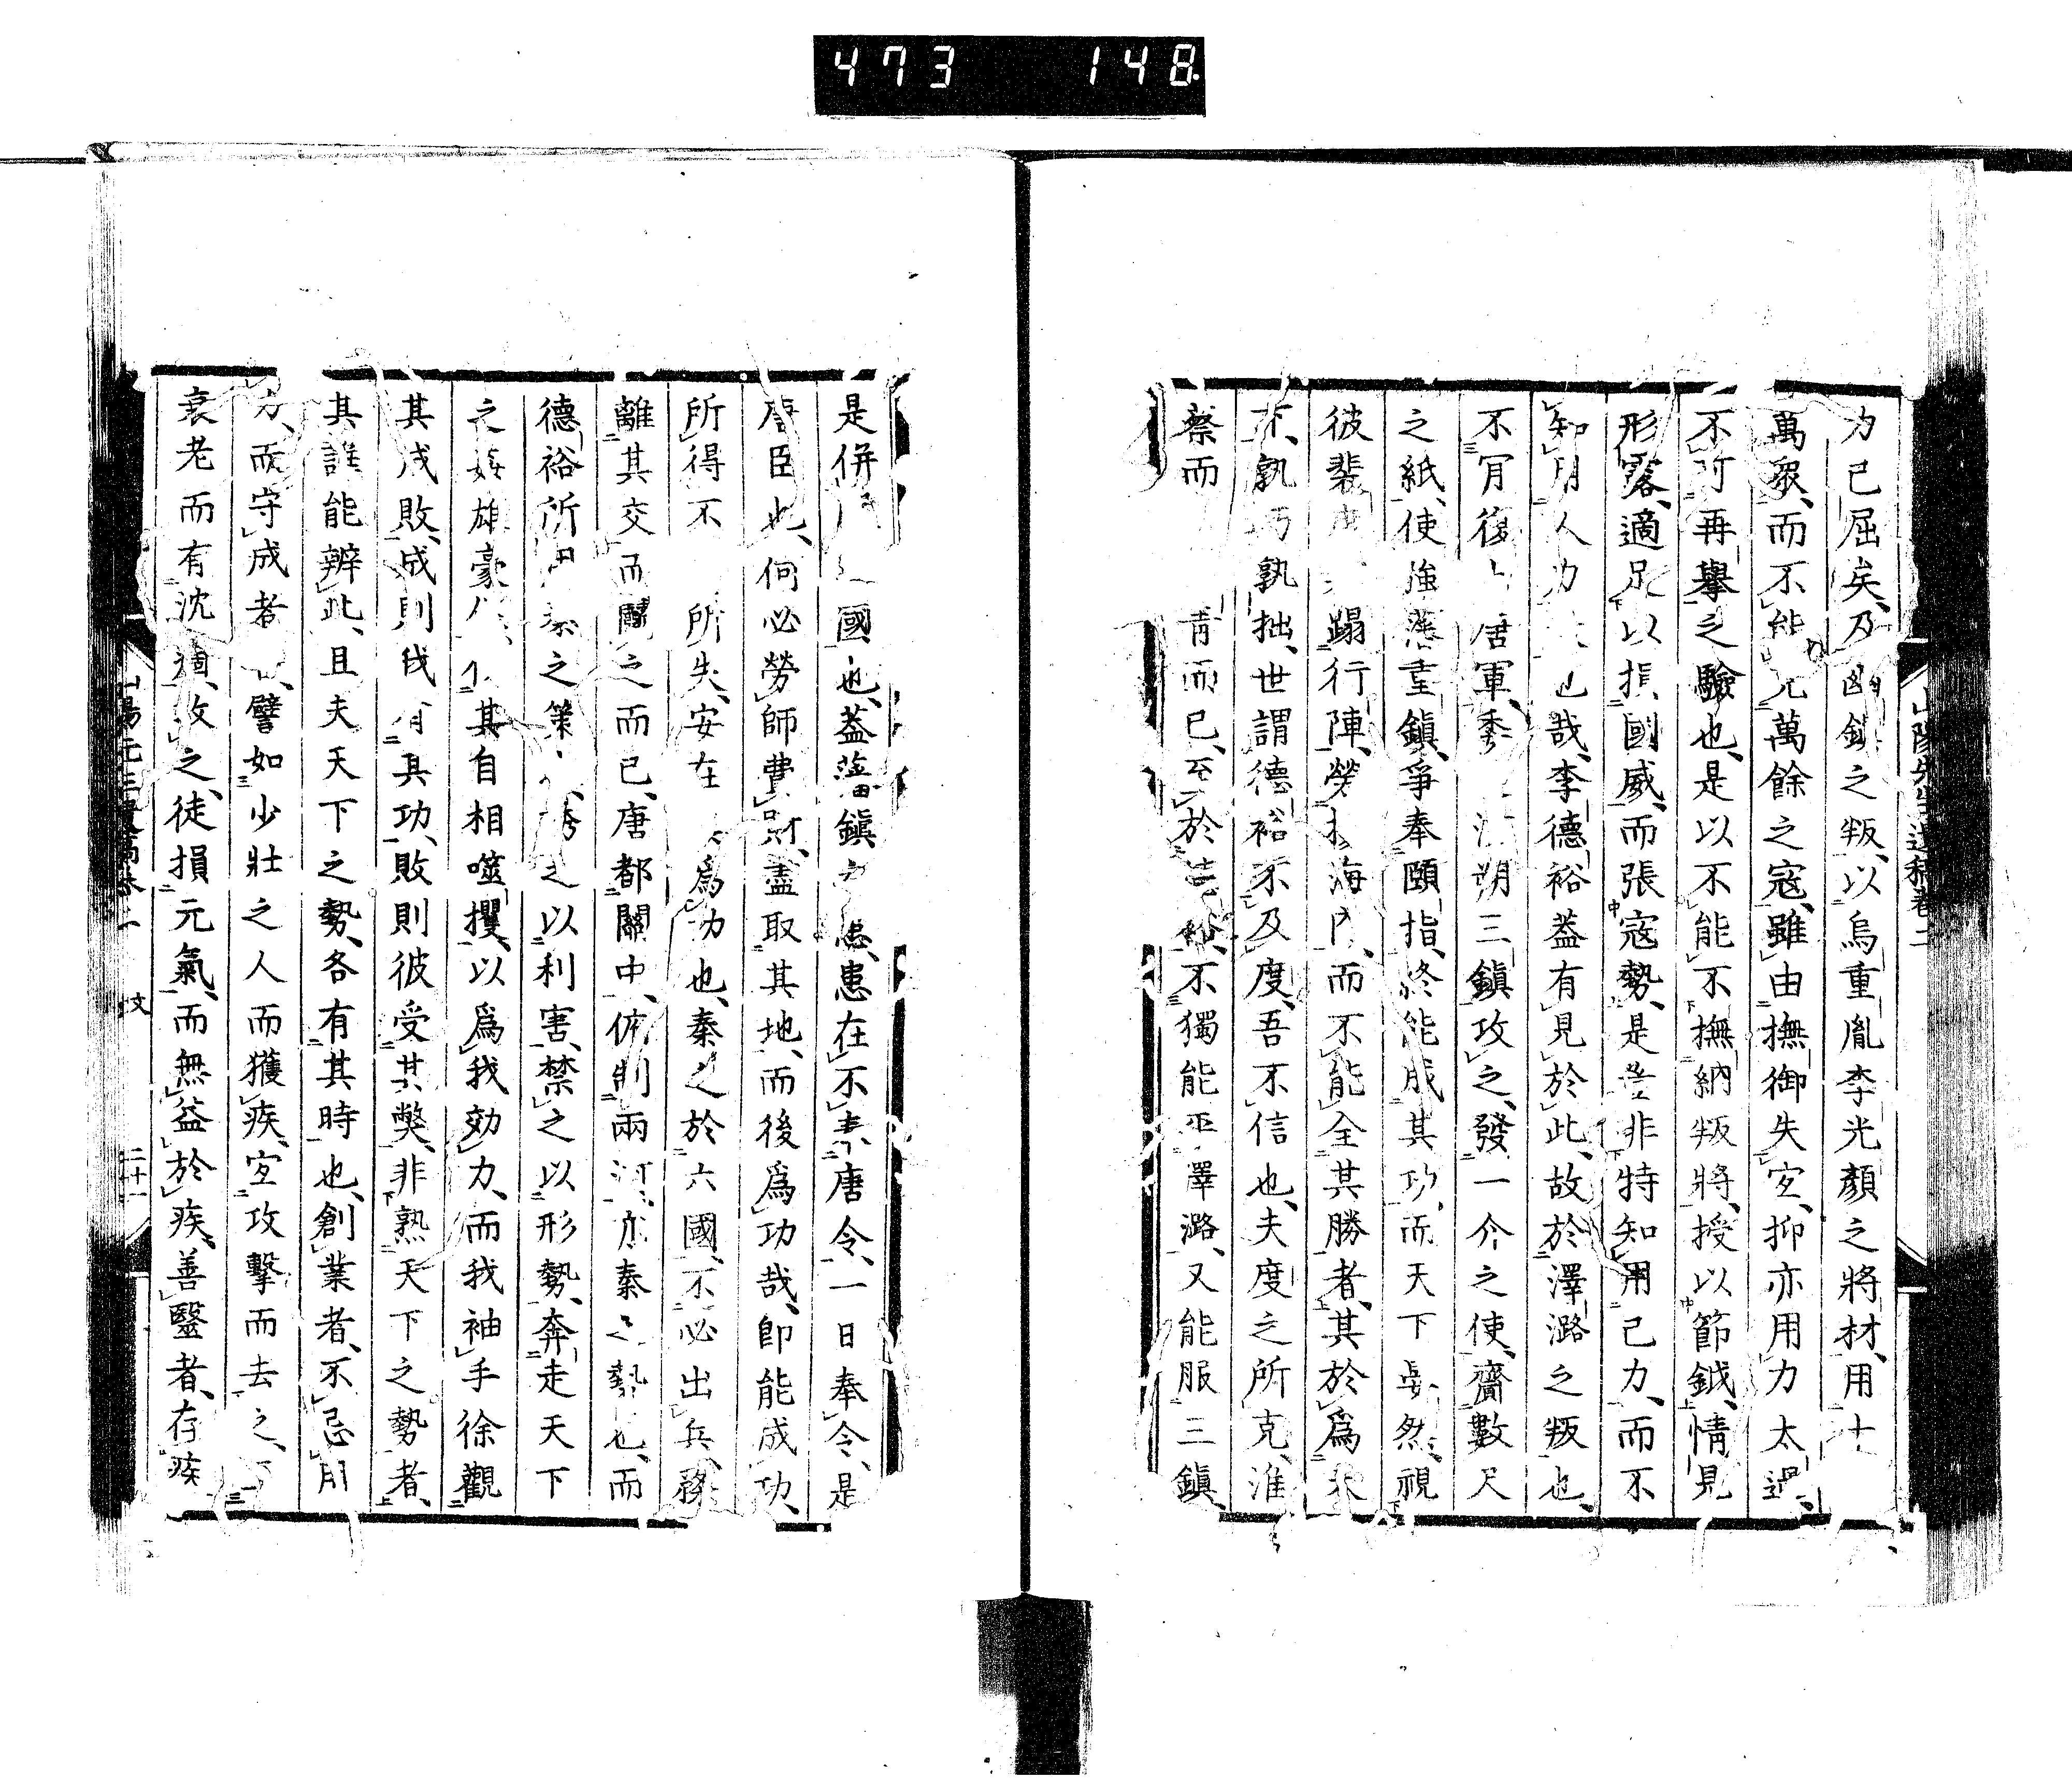 473 148
山陽先生遺稿卷二
力已屈矣、及幽鎮之叛、以烏重胤李光顏之將材、用十
萬衆、而不能克萬餘之寇、雖由撫御失宜、抑亦用力太過、
不可再擧之驗也、是以不能不撫納叛將、授以節鉞、情見
形露、適足以損國威、而張寇勢、是豈非特知用己力、而不
知用人力 也哉、李德裕蓋有見於此、故於澤潞之叛也、
不肯復 唐軍、委 河朔三鎭攻之、發一介之使、齎數尺
之紙、使強藩重鎭、爭奉頤指、終能成其功、而天下晏然、視
彼裴度 蹋行陣、勞 海內、而不能全其勝者、其於爲
不、孰巧孰拙、世謂德裕不及度、吾不信也、夫度之所克、淮
蔡而 青而已、至於德裕、不獨能平澤潞、又能服三鎭、
是併 國也、蓋藩鎭之患、患在不奉唐令、一日奉令、是
唐臣也、何必勞師費財、盡取其地、而後爲功哉、卽能成功、
所得不 所失、安在 爲功也、秦之於六國、不必出兵、務
離其交而鬭之而已、唐都關中、俯制兩河、亦秦之勢也、而
德裕所用秦之策 誘之以利害、禁之以形勢、奔走天下
之姦雄豪 其自相噬攫、以爲我效力、而我袖手徐觀
其成敗、成則我有其功、敗則彼受其弊、非熟天下之勢者、
其誰能辨此、且夫天下之勢、各有其時也、創業者、不忌用
力、而守成者 譬如少壯之人而獲疾、宜攻擊而去之、
衰老而有沈痼、攻之、徒損元氣、而無益於疾、善醫者、存疾
山陽先生遺稿卷二 文 二十一